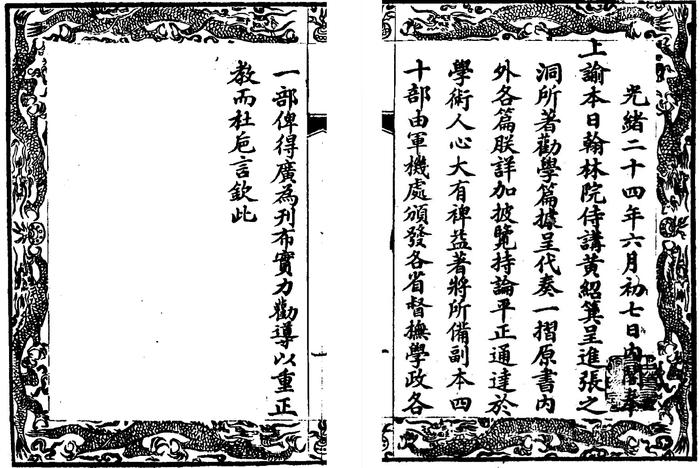 光緒二十四年六月初七日內閣奉
上諭本日翰林院侍講黃紹箕呈進張之
洞所著勸學篇據呈代奏一摺原書內
外各篇朕詳加披覽持論平正通達於
學術人心大有裨益著將所備副本四
十部由軍機處頒發各省督撫學政各
一部俾得廣為刊布實力勸導以重正
教而杜巵言欽此